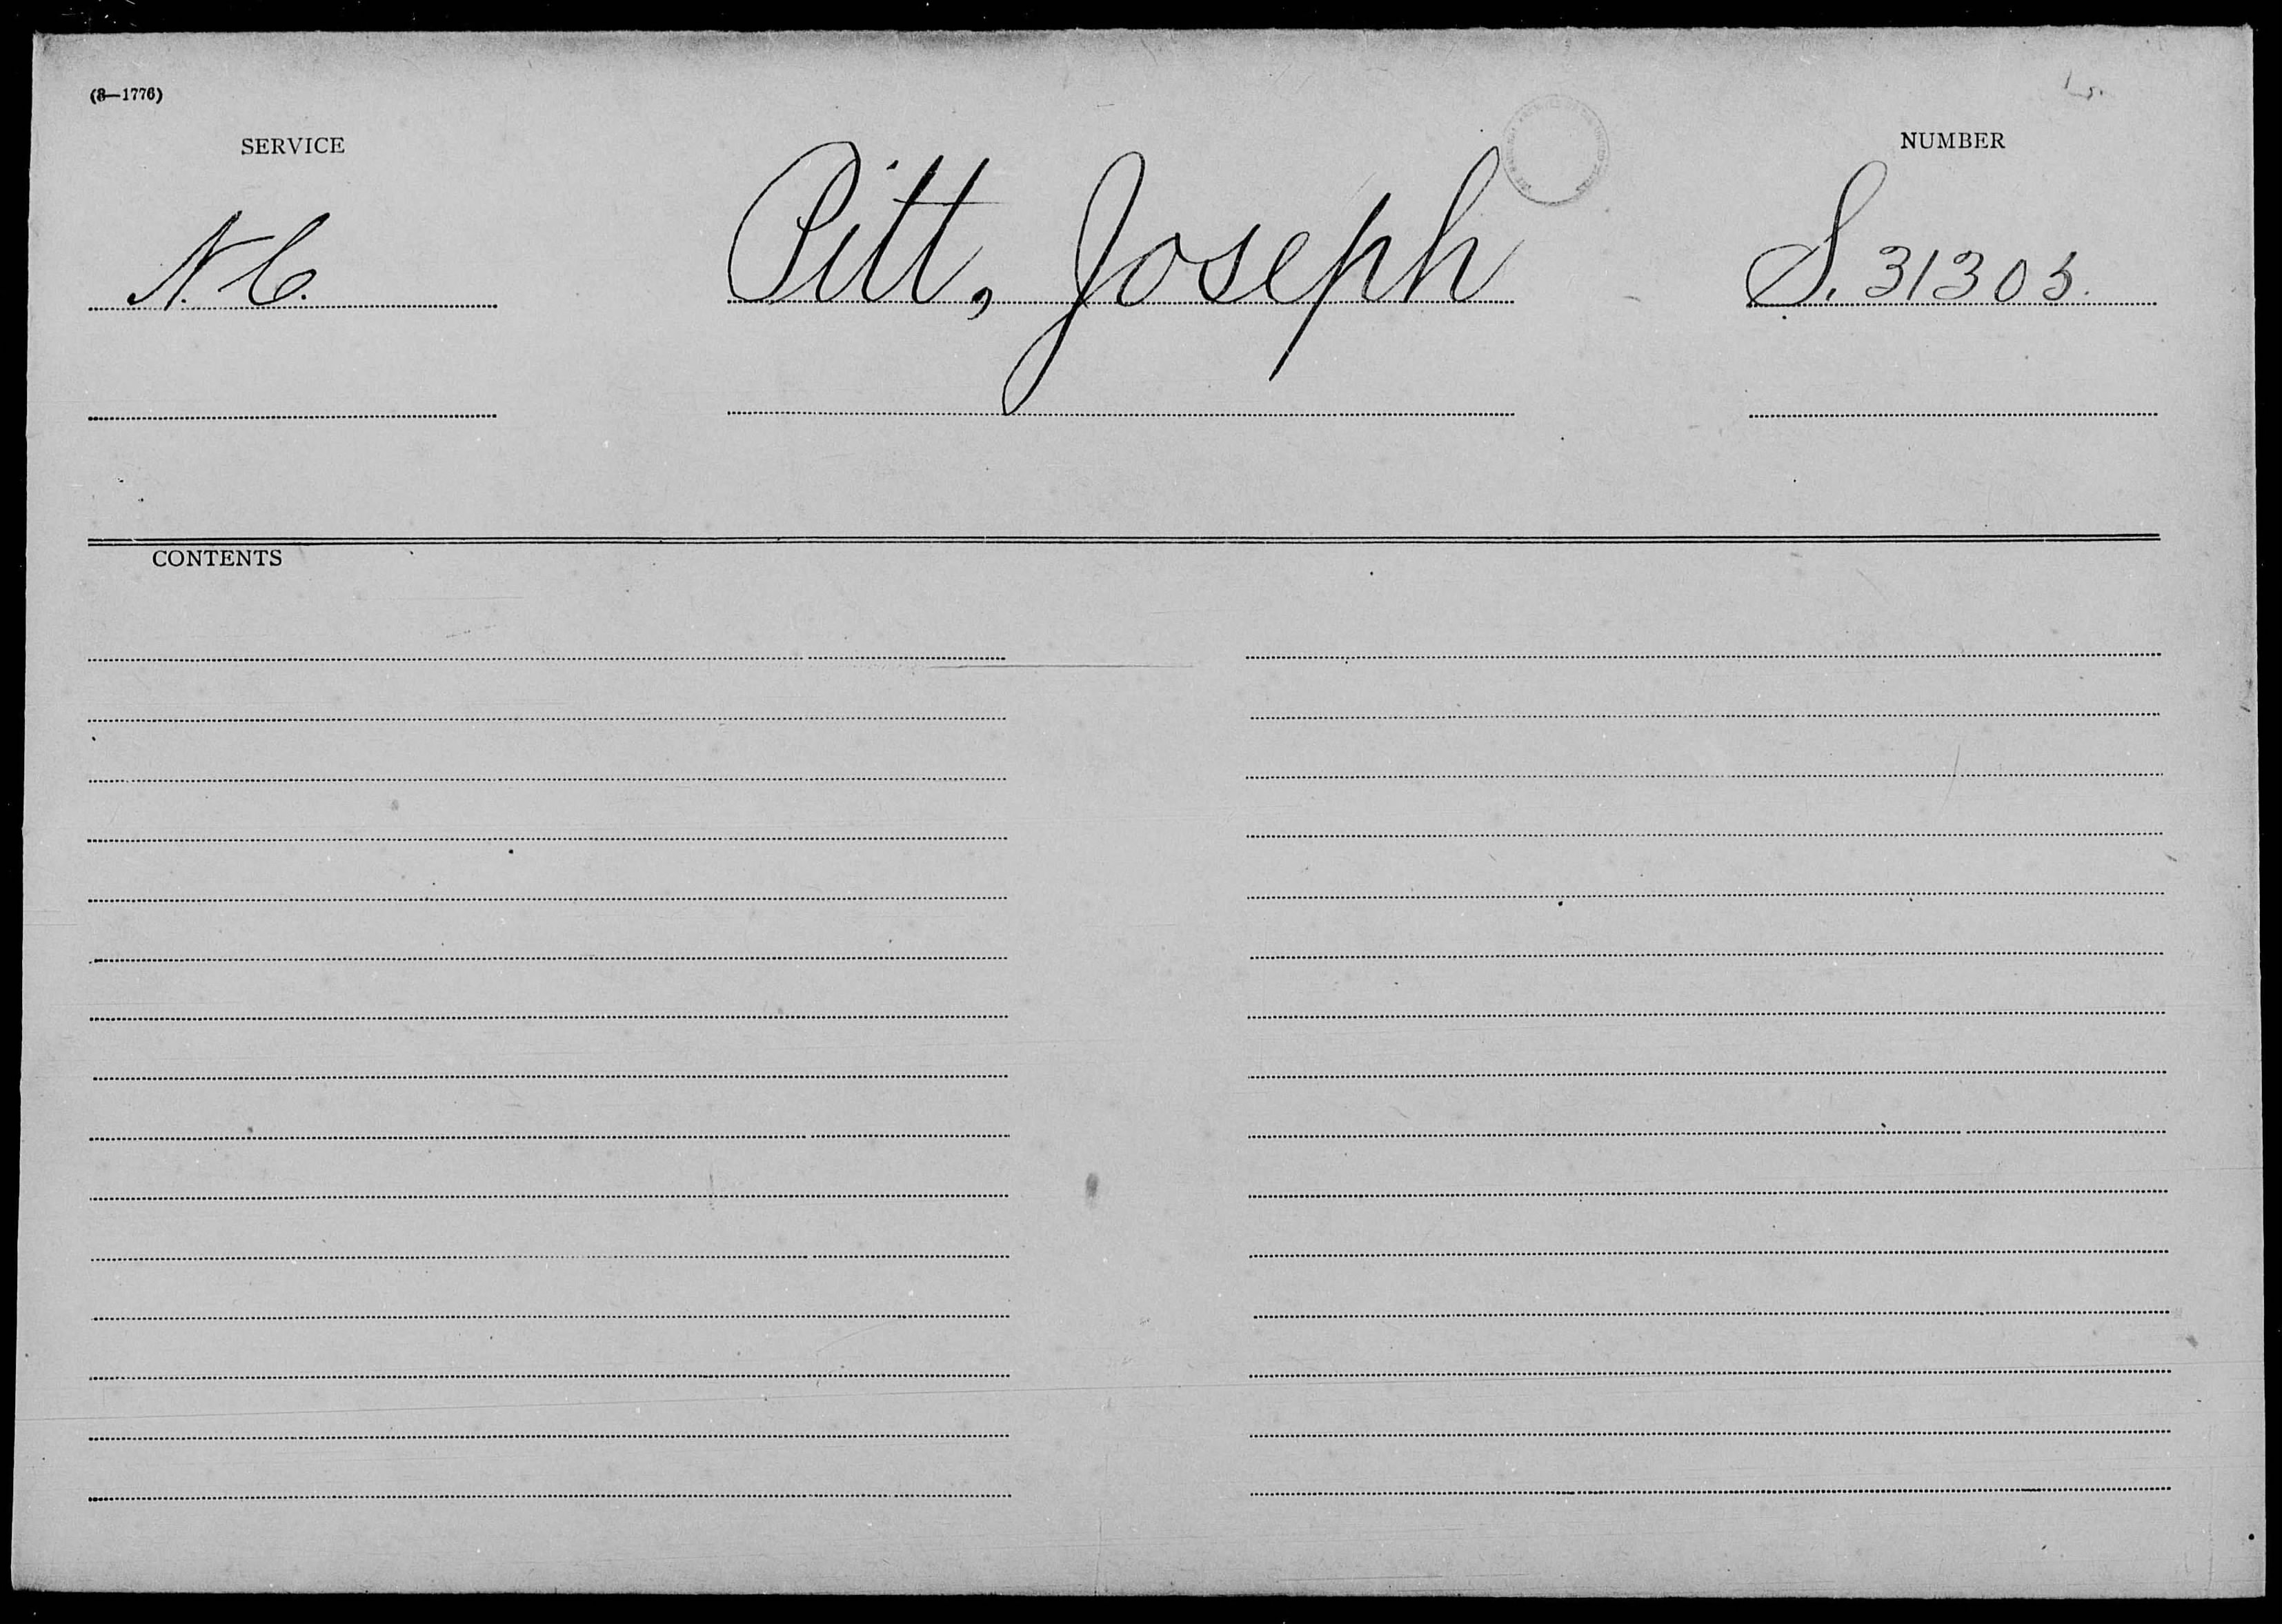 (3—1776)
SERVICE
NUMBER
N.C.
Pitt, Joseph
S. 31303.
CONTENTS